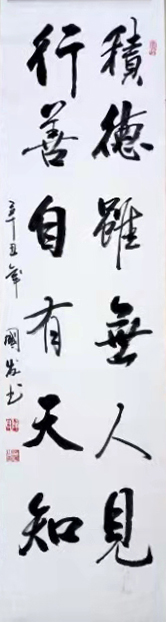 積德雖無人見
行善自有天知
辛丑年
國發书